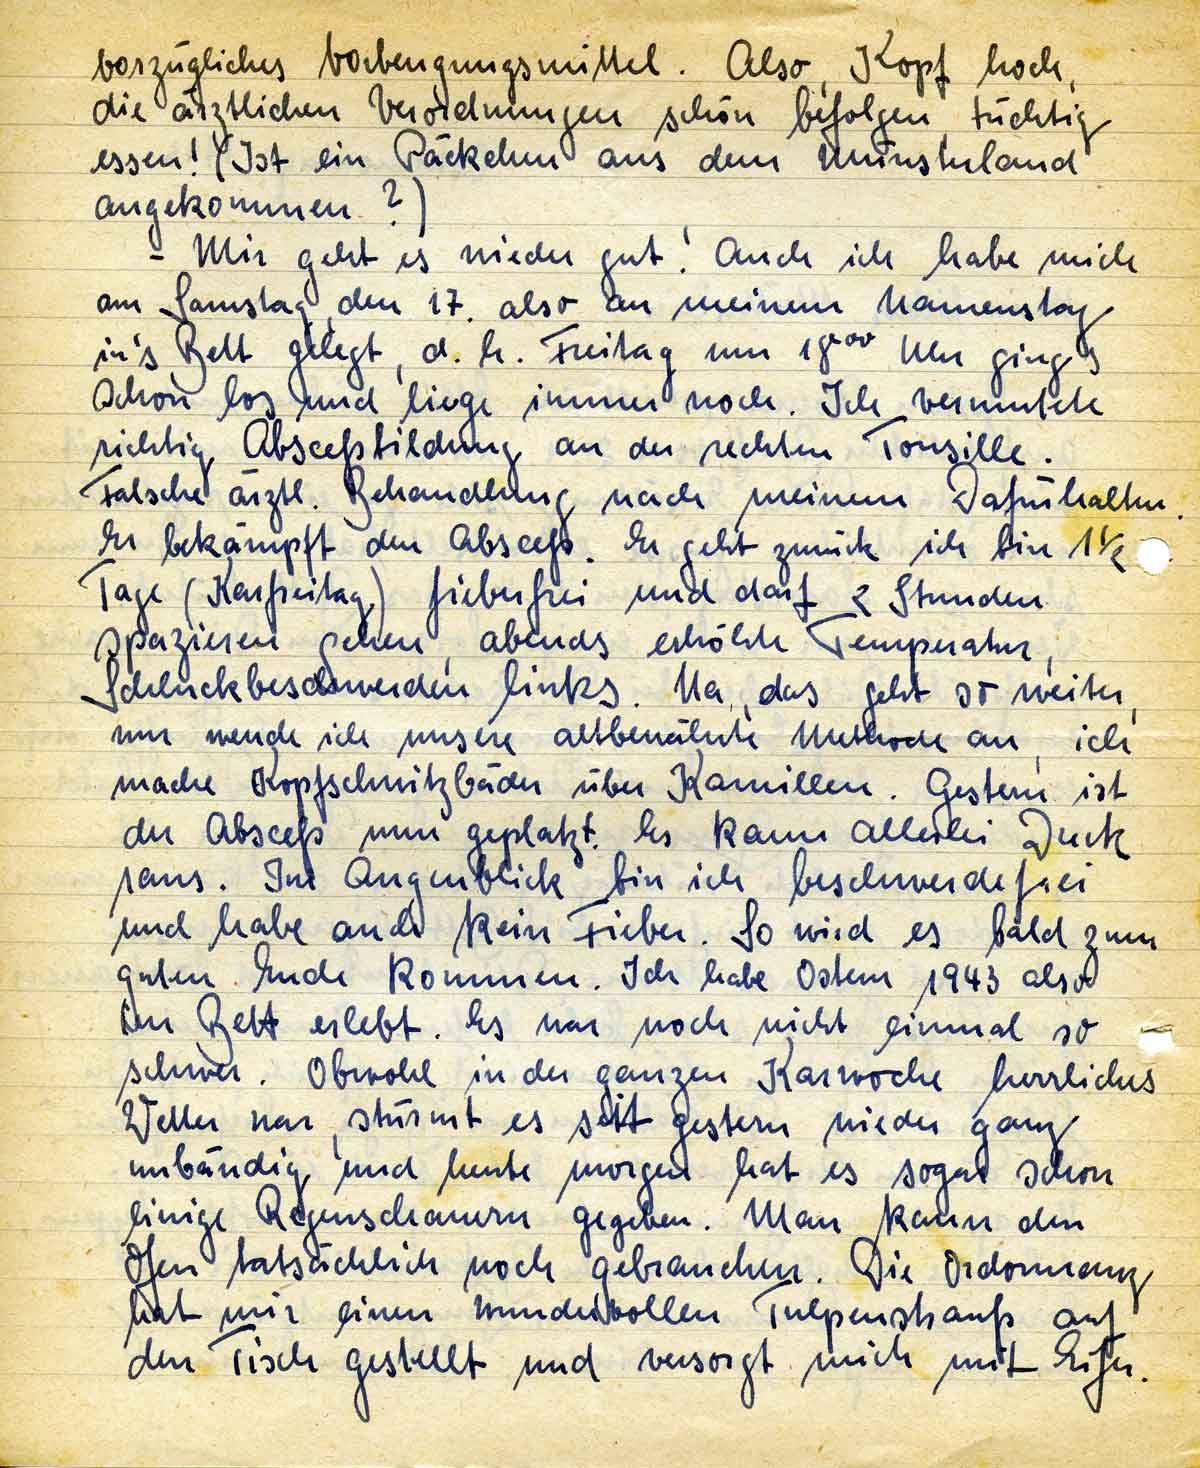 vorzügliches Vorbeugungsmittel. Also, Kopf hoch,
die ärztlichen Verordnungen schön befolgen, tüchtig
essen! (Ist ein Päckchen aus dem Münsterland
angekommen?)
- Mir geht es wieder gut! Auch ich habe mich
am Samstag, den 17. also an meinem Namenstag
in's Bett gelegt, d. h. Freitag um 18°° Uhr ging's
schon los und liege immer noch. Ich vermutete
richtig Absceßbildung an der rechten Tonsille.
Falsche ärztl. Behandlung nach meinem Dafürhalten.
Er bekämpft den Absceß. Er geht zurück ich bin 1½
Tage (Karfreitag) fieberfrei und darf 2 Stunden
spazieren gehen, abends erhöhte Temperatur,
Schluckbeschwerden links. Na, das geht so weiter,
nun wende ich unsere altbewährte Methode an, ich
mache Kopfschwitzbäder über Kamillen. Gestern ist
der Absceß nun geplatzt. Es kam allerlei Dreck
raus. Im Augenblick bin ich beschwerdefrei
und habe auch kein Fieber. So wird es bald zum
guten Ende kommen. Ich habe Ostern 1943 also
im Bett erlebt. Es war noch nicht einmal so
schwer. Obwohl in der ganzen Karwoche herrliches
Wetter war, stürmt es seit gestern wieder ganz
unbändig und heute morgen hat es sogar schon
einige Regenschauern gegeben. Man kann den
Ofen tatsächlich noch gebrauchen. Die Ordonnanz
hat mir einen wundervollen Tulpenstrauß auf
den Tisch gestellt und versorgt mich mit Eifer.